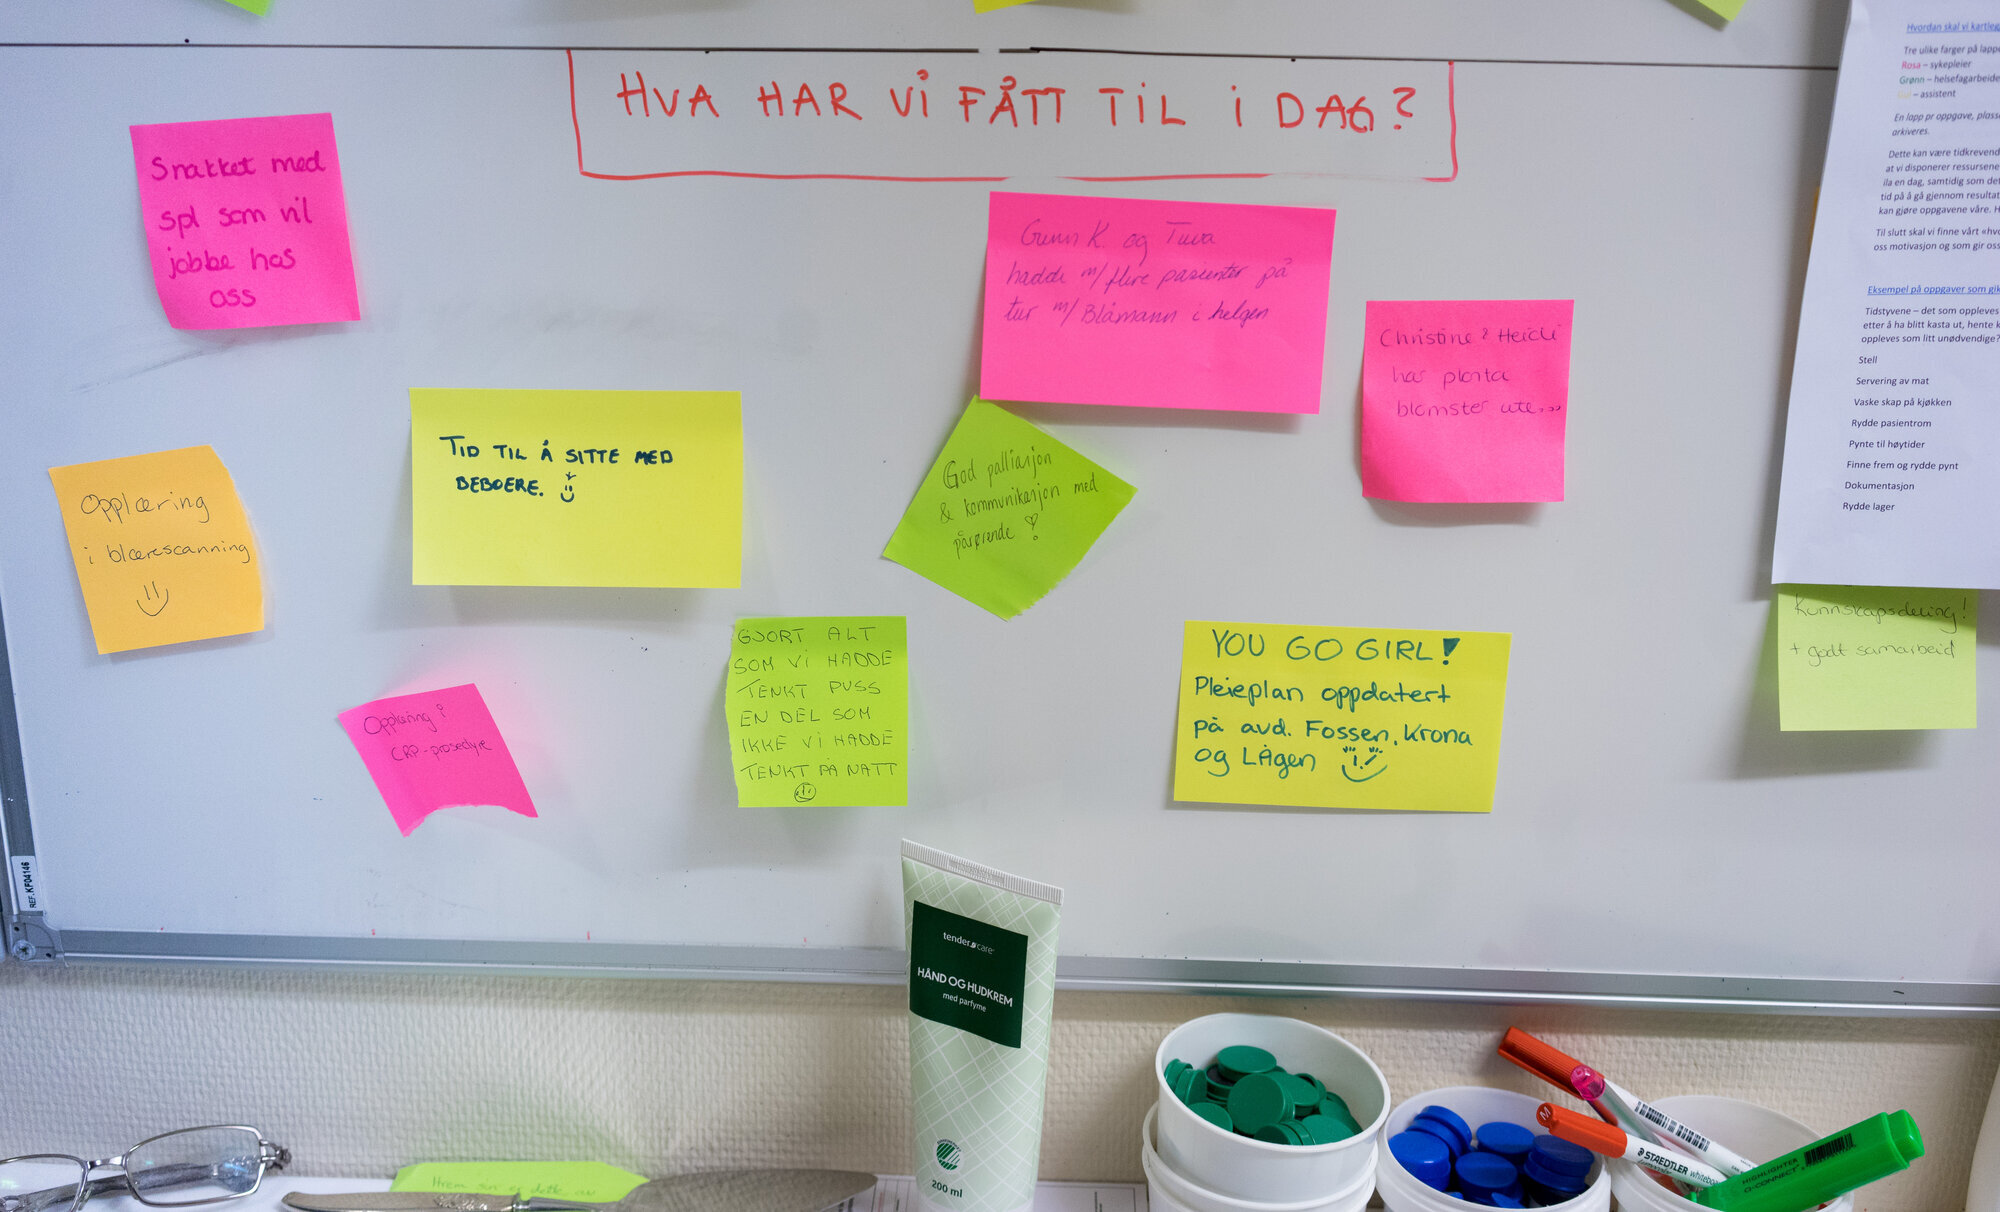 HVA HAR VI FÅTT TIL I DAG?
Snakket med
spl som vil
jobbe hos
oss
Gunn K. og Tuva
hadde m/ flere pasienter på
tur m/ Blåmann i helgen
Christine & Heidi
har planta
blomster ute...
TID TIL Å SITTE MED
BEBOERE.
God palliasjon
& kommunikasjon med
pårørende
Opplæring
i blærescanning
Opplæring i
CRP-prosedyre
GJORT ALT
SOM VI HADDE
TENKT PLUSS
EN DEL SOM
IKKE VI HADDE
TENKT PÅ NATT
YOU GO GIRL!
Pleieplan oppdatert
på avd. Fossen, Krona
og Lågen
Kunnskapsdeling!
+ godt samarbeid
Hvordan skal vi kartleg
Tre ulike farger på lapp
Rosa – sykepleier
Grønn – helsefagarbeide
Gul – assistent
En lapp pr oppgave, plass
arkiveres.
Dette kan være tidkrevend
at vi disponerer ressursene
ila en dag, samtidig som det
tid på å gå gjennom resultat
kan gjøre oppgavene våre. H
Til slutt skal vi finne vårt «hv
oss motivasjon og som gir oss
Eksempel på oppgaver som gik
Tidstyvene – det som oppleves
etter å ha blitt kasta ut, hente k
oppleves som litt unødvendige?
Stell
Servering av mat
Vaske skap på kjøkken
Rydde pasientrom
Pynte til høytider
Finne frem og rydde pynt
Dokumentasjon
Rydde lager
REF. KF04146
tender care
HÅND OG HUDKREM
med parfyme
200 ml
Hvem sin er dette
M
STAEDTLER
whiteboard
HIGHLIGHTER
Q-CONNECT